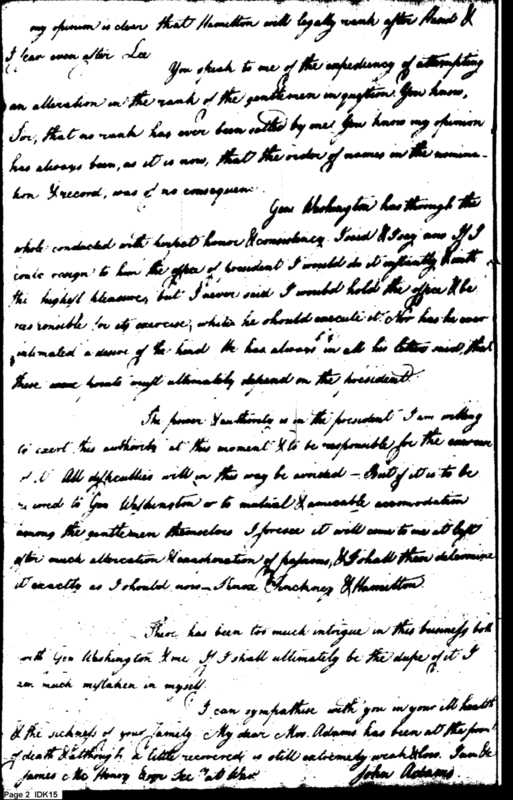 my opinion is clear that Hamilton will legally rank after Hand &
I fear even after Lee
You speak to me of the expediency of attempting
an alteration in the rank of the gentlemen in question. You know,
Sir, that no rank has ever been settled by me. You know my opinion
has always been, as it is now, that the order of names in the nomina-
tion & record, was of no consequence.
Gen Washington has through the
whole conducted with perfect honor & consistency. I said & I say now If I
could resign to him the office of president I would do it instantly & with
the highest pleasure, but I never said I would hold the office & be
responsible for its exercise, while he should execute it. Nor has he ever
intimated a desire of the kind. He has always in all his letters said, that
these points must ultimately depend on the president.
The power & authority is in the president I am willing
to exert this authority at this moment & to be responsible for the exercise
of it All difficulties will in this way be avoided – But if it is to be
to Gen Washington or to mutual & amicable accomodation
among the gentlemen themselves I foresee it will come to me at last
after much altercation & exasperation of passions, & I shall then determine
it exactly as I should now – Knox Pinckney & Hamilton
There has been too much intrigue in this business both
with Gen Washington & me If I shall ultimately be the dupe of it I
am much mistaken in myself.
I can sympathise with you in your ill health
& the sickness of your family My dear Mrs. Adams has been at the point
of death & although a little recovered is still extremely weak & low. I am &c
James Mc Henry Esqr Secy at War. John Adams
Page 2 IDK15